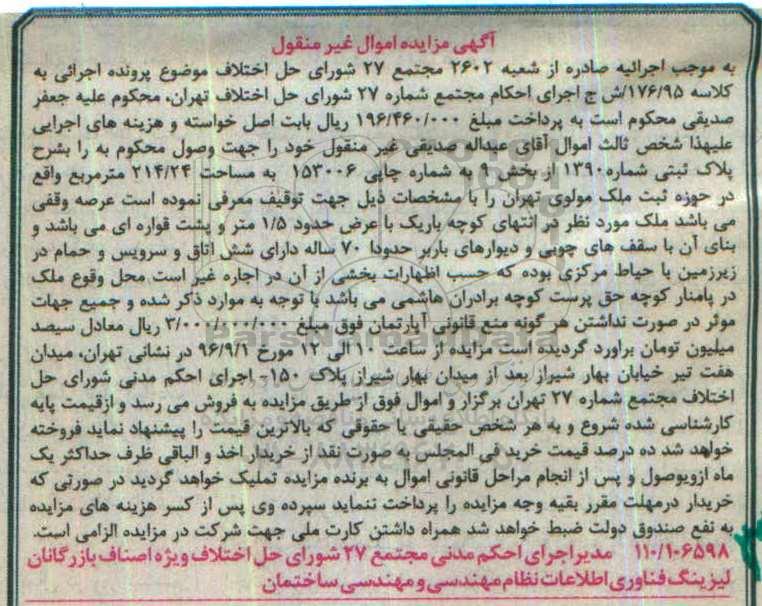 آگهی مزایده اموال غیر منقول
به موجب اجرائیه صادره از شعبه ۲۶۰۲ مجتمع ۲۷ شورای حل اختلاف موضوع پرونده اجرائی به
کلاسه ۱۷۶/۹۵/ش ج اجرای احکام مجتمع شماره ۲۷ شورای حل اختلاف تهران، محکوم علیه جعفر
صدیقی محکوم است به پرداخت مبلغ ۱۹۶/۴۶۰/۰۰۰ ریال بابت اصل خواسته و هزینه های اجرایی
علیهذا شخص ثالث اموال آقای عبداله صدیقی غیر منقول خود را جهت وصول محکوم به را بشرح
پلاک ثبتی شماره ۱۳۹۰ از بخش ۹ به شماره چاپی ۱۵۳۰۰۶ به مساحت ۲۱۴/۲۴ مترمربع واقع
در حوزه ثبت ملک مولوی تهران را با مشخصات ذیل جهت توقیف معرفی نموده است عرصه وقفی
می باشد ملک مورد نظر در انتهای کوچه باریک با عرض حدود ۱/۵ متر و پشت قواره ای می باشد و
بنای آن با سقف های چوبی و دیوارهای باربر حدودا ۷۰ ساله دارای شش اتاق و سرویس و حمام در
زیرزمین با حیاط مرکزی بوده که حسب اظهارات بخشی از آن در اجاره غیر است محل وقوع ملک
در پامنار کوچه حق پرست کوچه برادران هاشمی می باشد با توجه به موارد ذکر شده و جمیع جهات
موثر در صورت نداشتن هر گونه منع قانونی آپارتمان فوق مبلغ ۳/۰۰۰/۰۰۰/۰۰۰ ریال معادل سیصد
میلیون تومان براورد گردیده است مزایده از ساعت ۱۰ الی ۱۲ مورخ ۹۶/۹/۱ در نشانی تهران، میدان
هفت تیر خیابان بهار شیراز بعد از میدان بهار شیراز پلاک ۱۵۰- اجرای احکم مدنی شورای حل
اختلاف مجتمع شماره ۲۷ تهران برگزار و اموال فوق از طریق مزایده به فروش می رسد و ازقیمت پایه
کارشناسی شده شروع و به هر شخص حقیقی یا حقوقی که بالاترین قیمت را پیشنهاد نماید فروخته
خواهد شد ده درصد قیمت خرید فی المجلس به صورت نقد از خریدار اخذ و الباقی ظرف حداکثر یک
ماه ازویوصول و پس از انجام مراحل قانونی اموال به برنده مزایده تملیک خواهد گردید در صورتی که
خریدار درمهلت مقرر بقیه وجه مزایده را پرداخت ننماید سپرده وی پس از کسر هزینه های مزایده
به نفع صندوق دولت ضبط خواهد شد همراه داشتن کارت ملی جهت شرکت در مزایده الزامی است.
۱۱۰/۱۰۶۵۹۸ مدیر اجرای احکم مدنی مجتمع ۲۷ شورای حل اختلاف ویژه اصناف بازرگانان
لیزینگ فناوری اطلاعات نظام مهندسی و مهندسی ساختمان